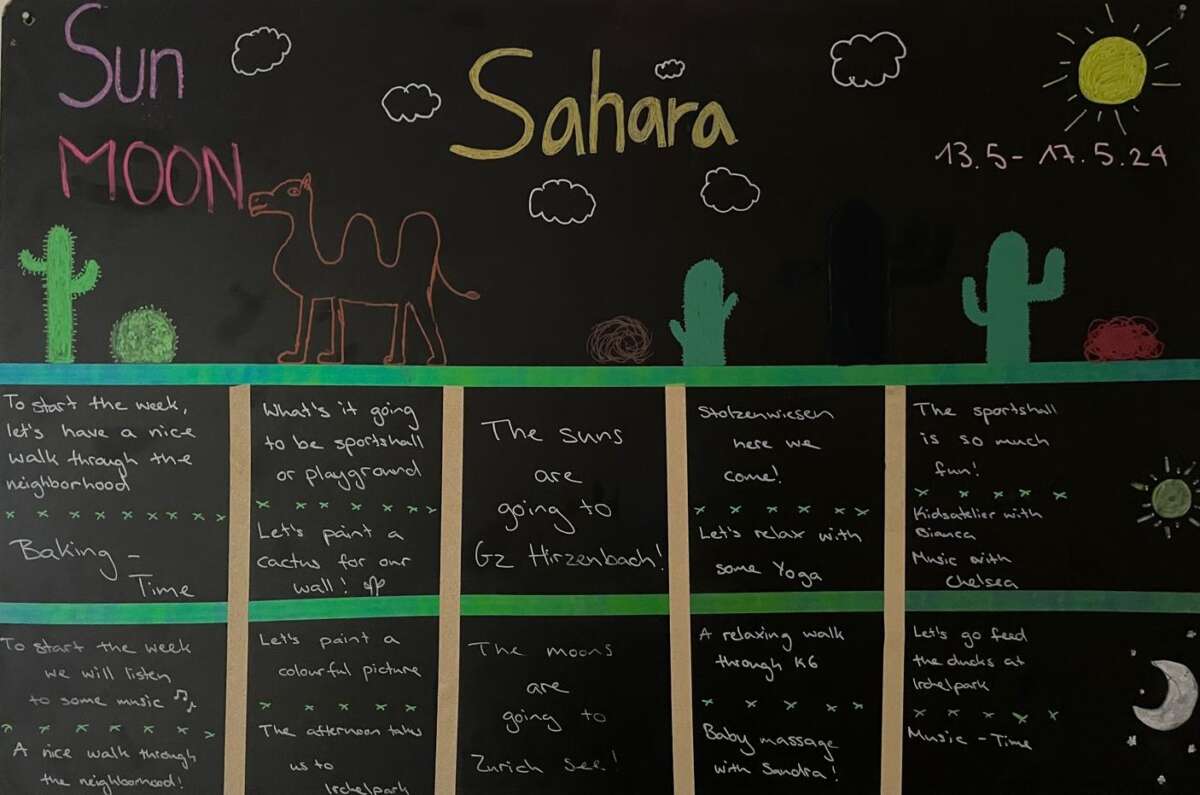 Sun
MOON
Sahara
13.5 - 17.5.24
To start the week,
let's have a nice
walk through the
neighborhood
Baking -
Time
What's it going
to be sportshall
or playground
Let's paint a
cactus for our
wall!
The suns
are
going to
Gz Hirzenbach!
Stolzenwiesen
here we
come!
Let's relax with
some Yoga
The sportshall
is so much
fun!
Kidsatelier with
Bianca
Music with
Chelsea
To start the week
we will listen
to some music
A nice walk through
the neighborhood!
Let's paint a
colourful picture
The afternoon takes
us to
Irchelpark
The moons
are
going to
Zurich See!
A relaxing walk
through K6
Baby massage
with Sandra!
Let's go feed
the ducks at
Irchelpark
Music - Time